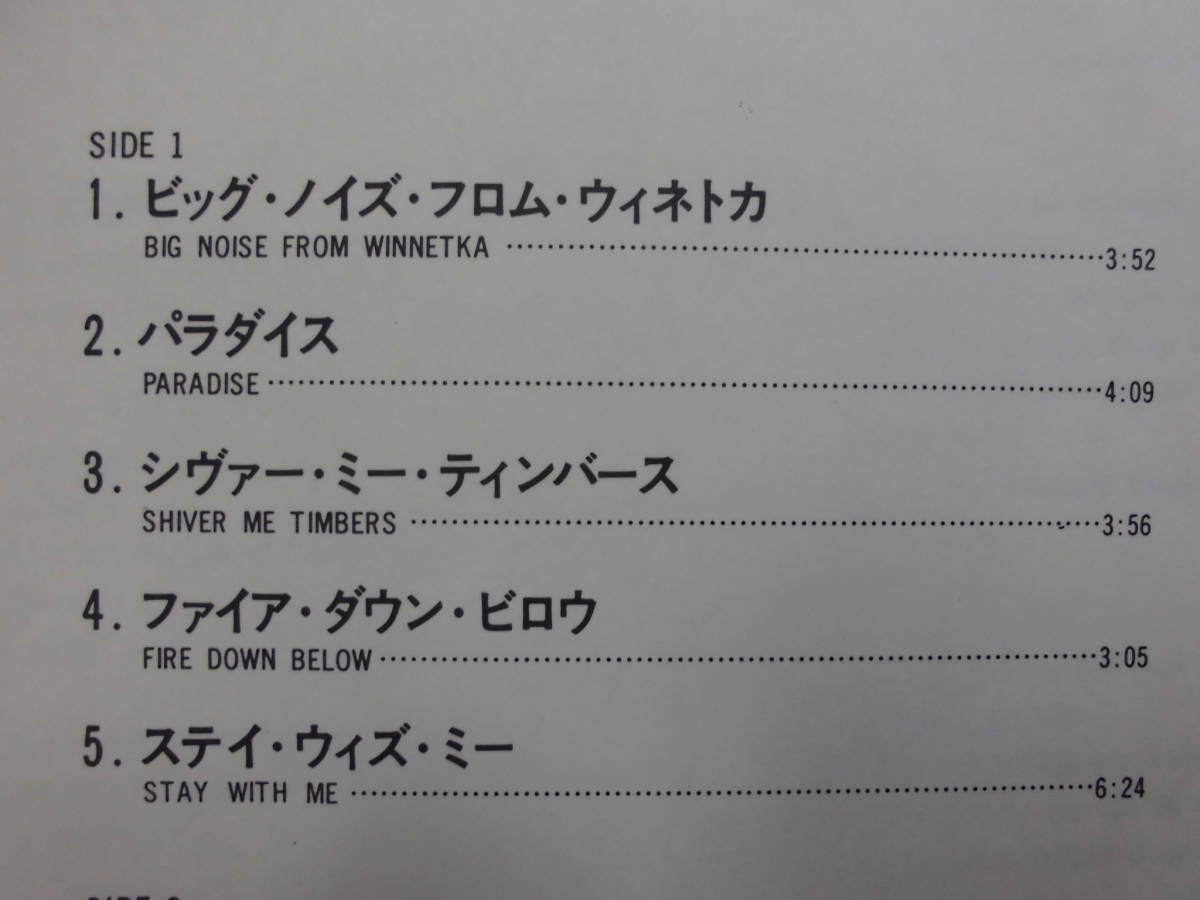 SIDE 1
1. ビッグ・ノイズ・フロム・ウィネトカ
BIG NOISE FROM WINNETKA ……………………………………………3:52
2. パラダイス
PARADISE……………………………………………………………4:09
3. シヴァー・ミー・ティンバース
SHIVER ME TIMBERS ……………………………………………………3:56
4. ファイア・ダウン・ビロウ
FIRE DOWN BELOW……………………………………………………3:05
5. ステイ・ウィズ・ミー
STAY WITH ME ………………………………………………………6:24